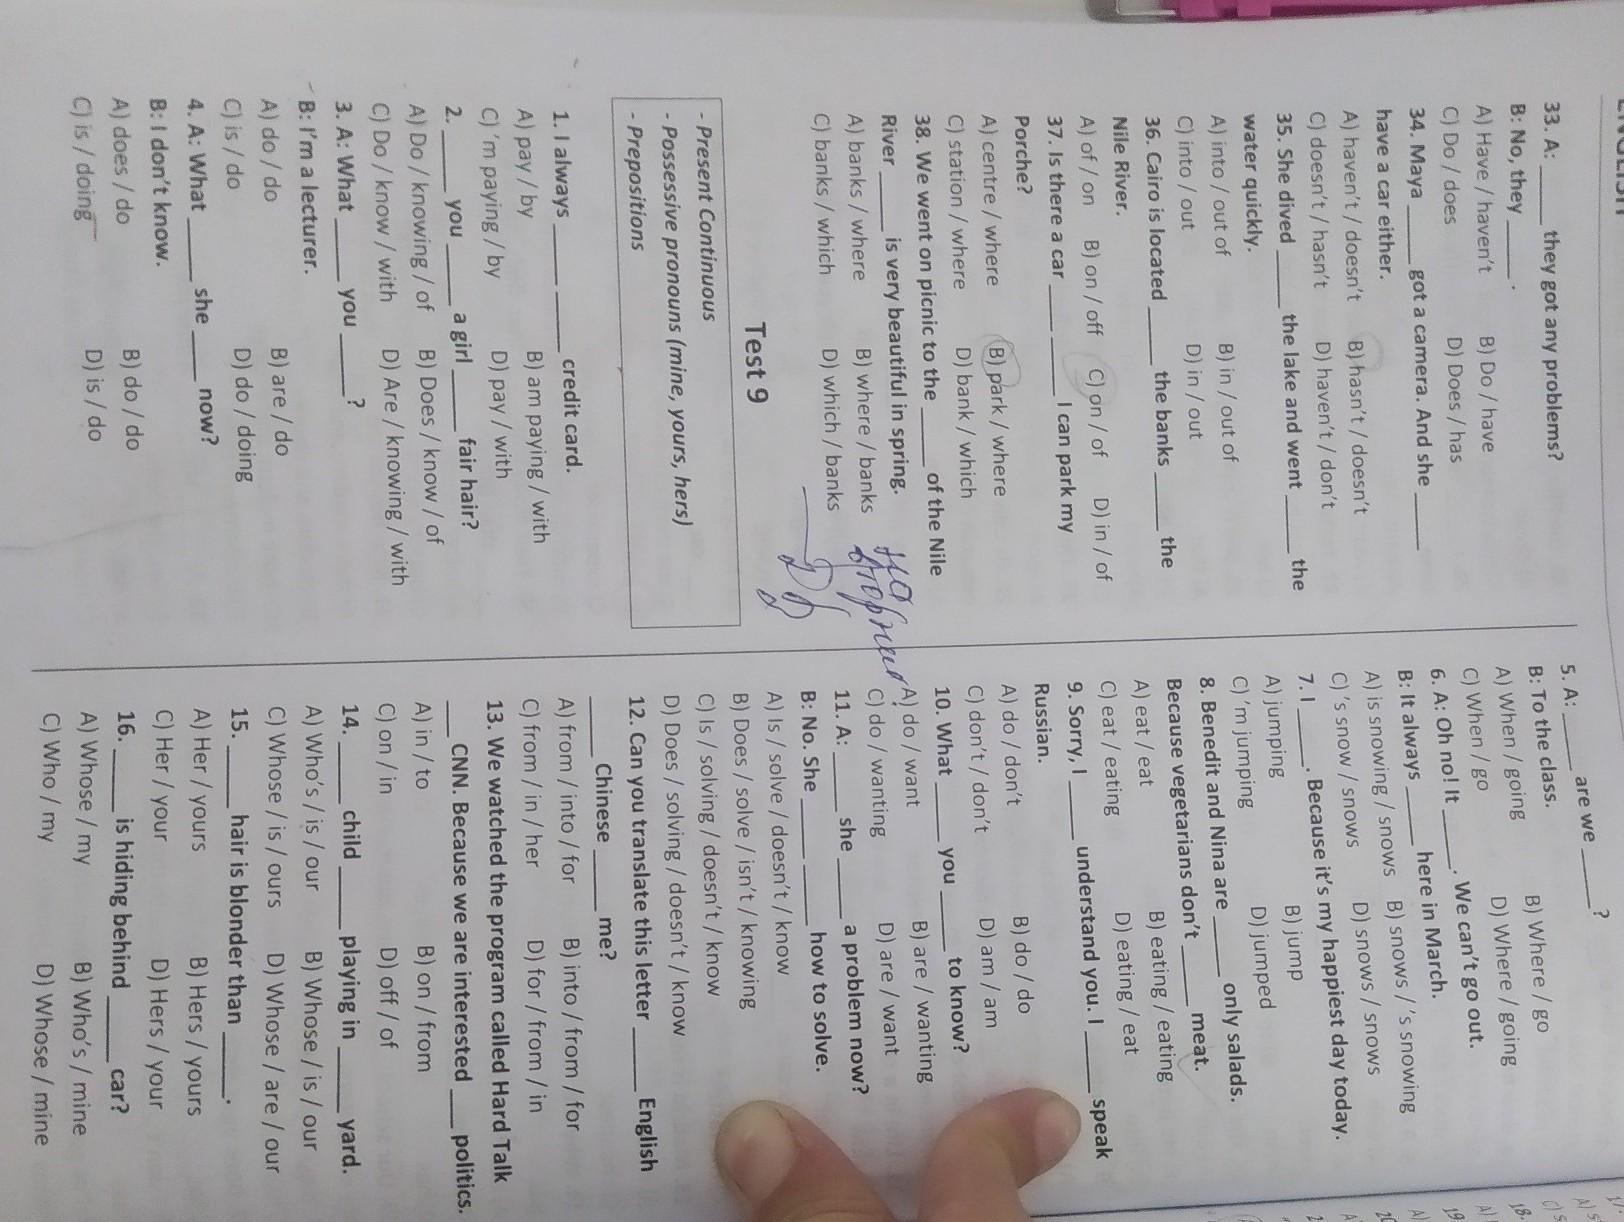 33. A: _____ they got any problems?
B: No, they _____.
A) Have / haven't B) Do / have
C) Do / does D) Does / has
34. Maya _____ got a camera. And she _____
have a car either.
A) haven't / doesn't B) hasn't / doesn't
C) doesn't / hasn't D) haven't / don't
35. She dived _____ the lake and went _____ the
water quickly.
A) into / out of B) in / out of
C) into / out D) in / out
36. Cairo is located _____ the banks _____ the
Nile River.
A) of / on B) on / off C) on / of D) in / of
37. Is there a car _____ _____ I can park my
Porche?
A) centre / where B) park / where
C) station / where D) bank / which
38. We went on picnic to the _____ of the Nile
River _____ is very beautiful in spring.
A) banks / where B) where / banks
C) banks / which D) which / banks
Test 9
- Present Continuous
- Possessive pronouns (mine, yours, hers)
- Prepositions
1. I always _____ _____ credit card.
A) pay / by B) am paying / with
C) 'm paying / by D) pay / with
2. _____ you _____ a girl _____ fair hair?
A) Do / knowing / of B) Does / know / of
C) Do / know / with D) Are / knowing / with
3. A: What _____ you _____?
B: I'm a lecturer.
A) do / do B) are / do
C) is / do D) do / doing
4. A: What _____ she _____ now?
B: I don't know.
A) does / do B) do / do
C) is / doing D) is / do
5. A: _____ are we _____?
B: To the class.
A) When / going B) Where / go
C) When / go D) Where / going
6. A: Oh no! It _____. We can't go out.
B: It always _____ here in March.
A) is snowing / snows B) snows / 's snowing
C) 's snow / snows D) snows / snows
7. I _____. Because it's my happiest day today.
A) jumping B) jump
C) 'm jumping D) jumped
8. Benedit and Nina are _____ only salads.
Because vegetarians don't _____ meat.
A) eat / eat B) eating / eating
C) eat / eating D) eating / eat
9. Sorry, I _____ understand you. I _____ speak
Russian.
A) do / don't B) do / do
C) don't / don't D) am / am
10. What _____ you _____ to know?
A) do / want B) are / wanting
C) do / wanting D) are / want
11. A: _____ she _____ a problem now?
B: No. She _____ _____ how to solve.
A) Is / solve / doesn't / know
B) Does / solve / isn't / knowing
C) Is / solving / doesn't / know
D) Does / solving / doesn't / know
12. Can you translate this letter _____ English
_____ Chinese _____ me?
A) from / into / for B) into / from / for
C) from / in / her D) for / from / in
13. We watched the program called Hard Talk
_____ CNN. Because we are interested _____ politics.
A) in / to B) on / from
C) on / in D) off / of
14. _____ child _____ playing in _____ yard.
A) Who's / is / our B) Whose / is / our
C) Whose / is / ours D) Whose / are / our
15. _____ hair is blonder than _____.
A) Her / yours B) Hers / yours
C) Her / your D) Hers / your
16. _____ is hiding behind _____ car?
A) Whose / my B) Who's / mine
C) Who / my D) Whose / mine